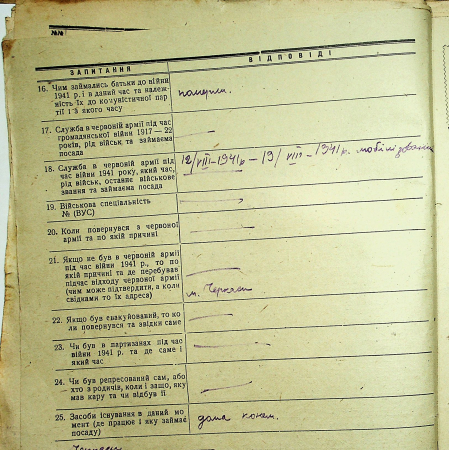 №№
ЗАПИТАННЯ
ВІДПОВІДІ
16. Чим займались батьки до війни
1941 р. і в даний час та належ-
ність їх до комуністичної пар-
тії і з якого часу
померли.
17. Служба в червоній армії під час
громадянської війни 1917—22
років, рід військ та займаєма
посада
18. Служба в червоній армії під
час війни 1941 року, який час,
рід військ, останнє військове
звання та займаєма посада
12/VIII-1941р - 19/VIII-1941р. мобілізован
19. Військова спеціальність
№ (ВУС)
20. Коли повернувся з червоної
армії та по якій причині
21. Якщо не був в червоній армії
під час війни 1941 р., то по
якій причині та де перебував
підчас відходу червоної армії
(чим може підтвердити, а коли
свідками то їх адреса)
м. Черкаси
22. Якщо був евакуйований, то ко
ли повернувся та звідки саме
23. Чи був в партизанах під час
війни 1941 р. та де саме і
який час
24. Чи був репресований сам, або
хто з родичів, коли і защо, яку
мав кару та чи відбув її
25. Засоби існування в даний мо
мент (де працює і яку займає
посаду)
дома